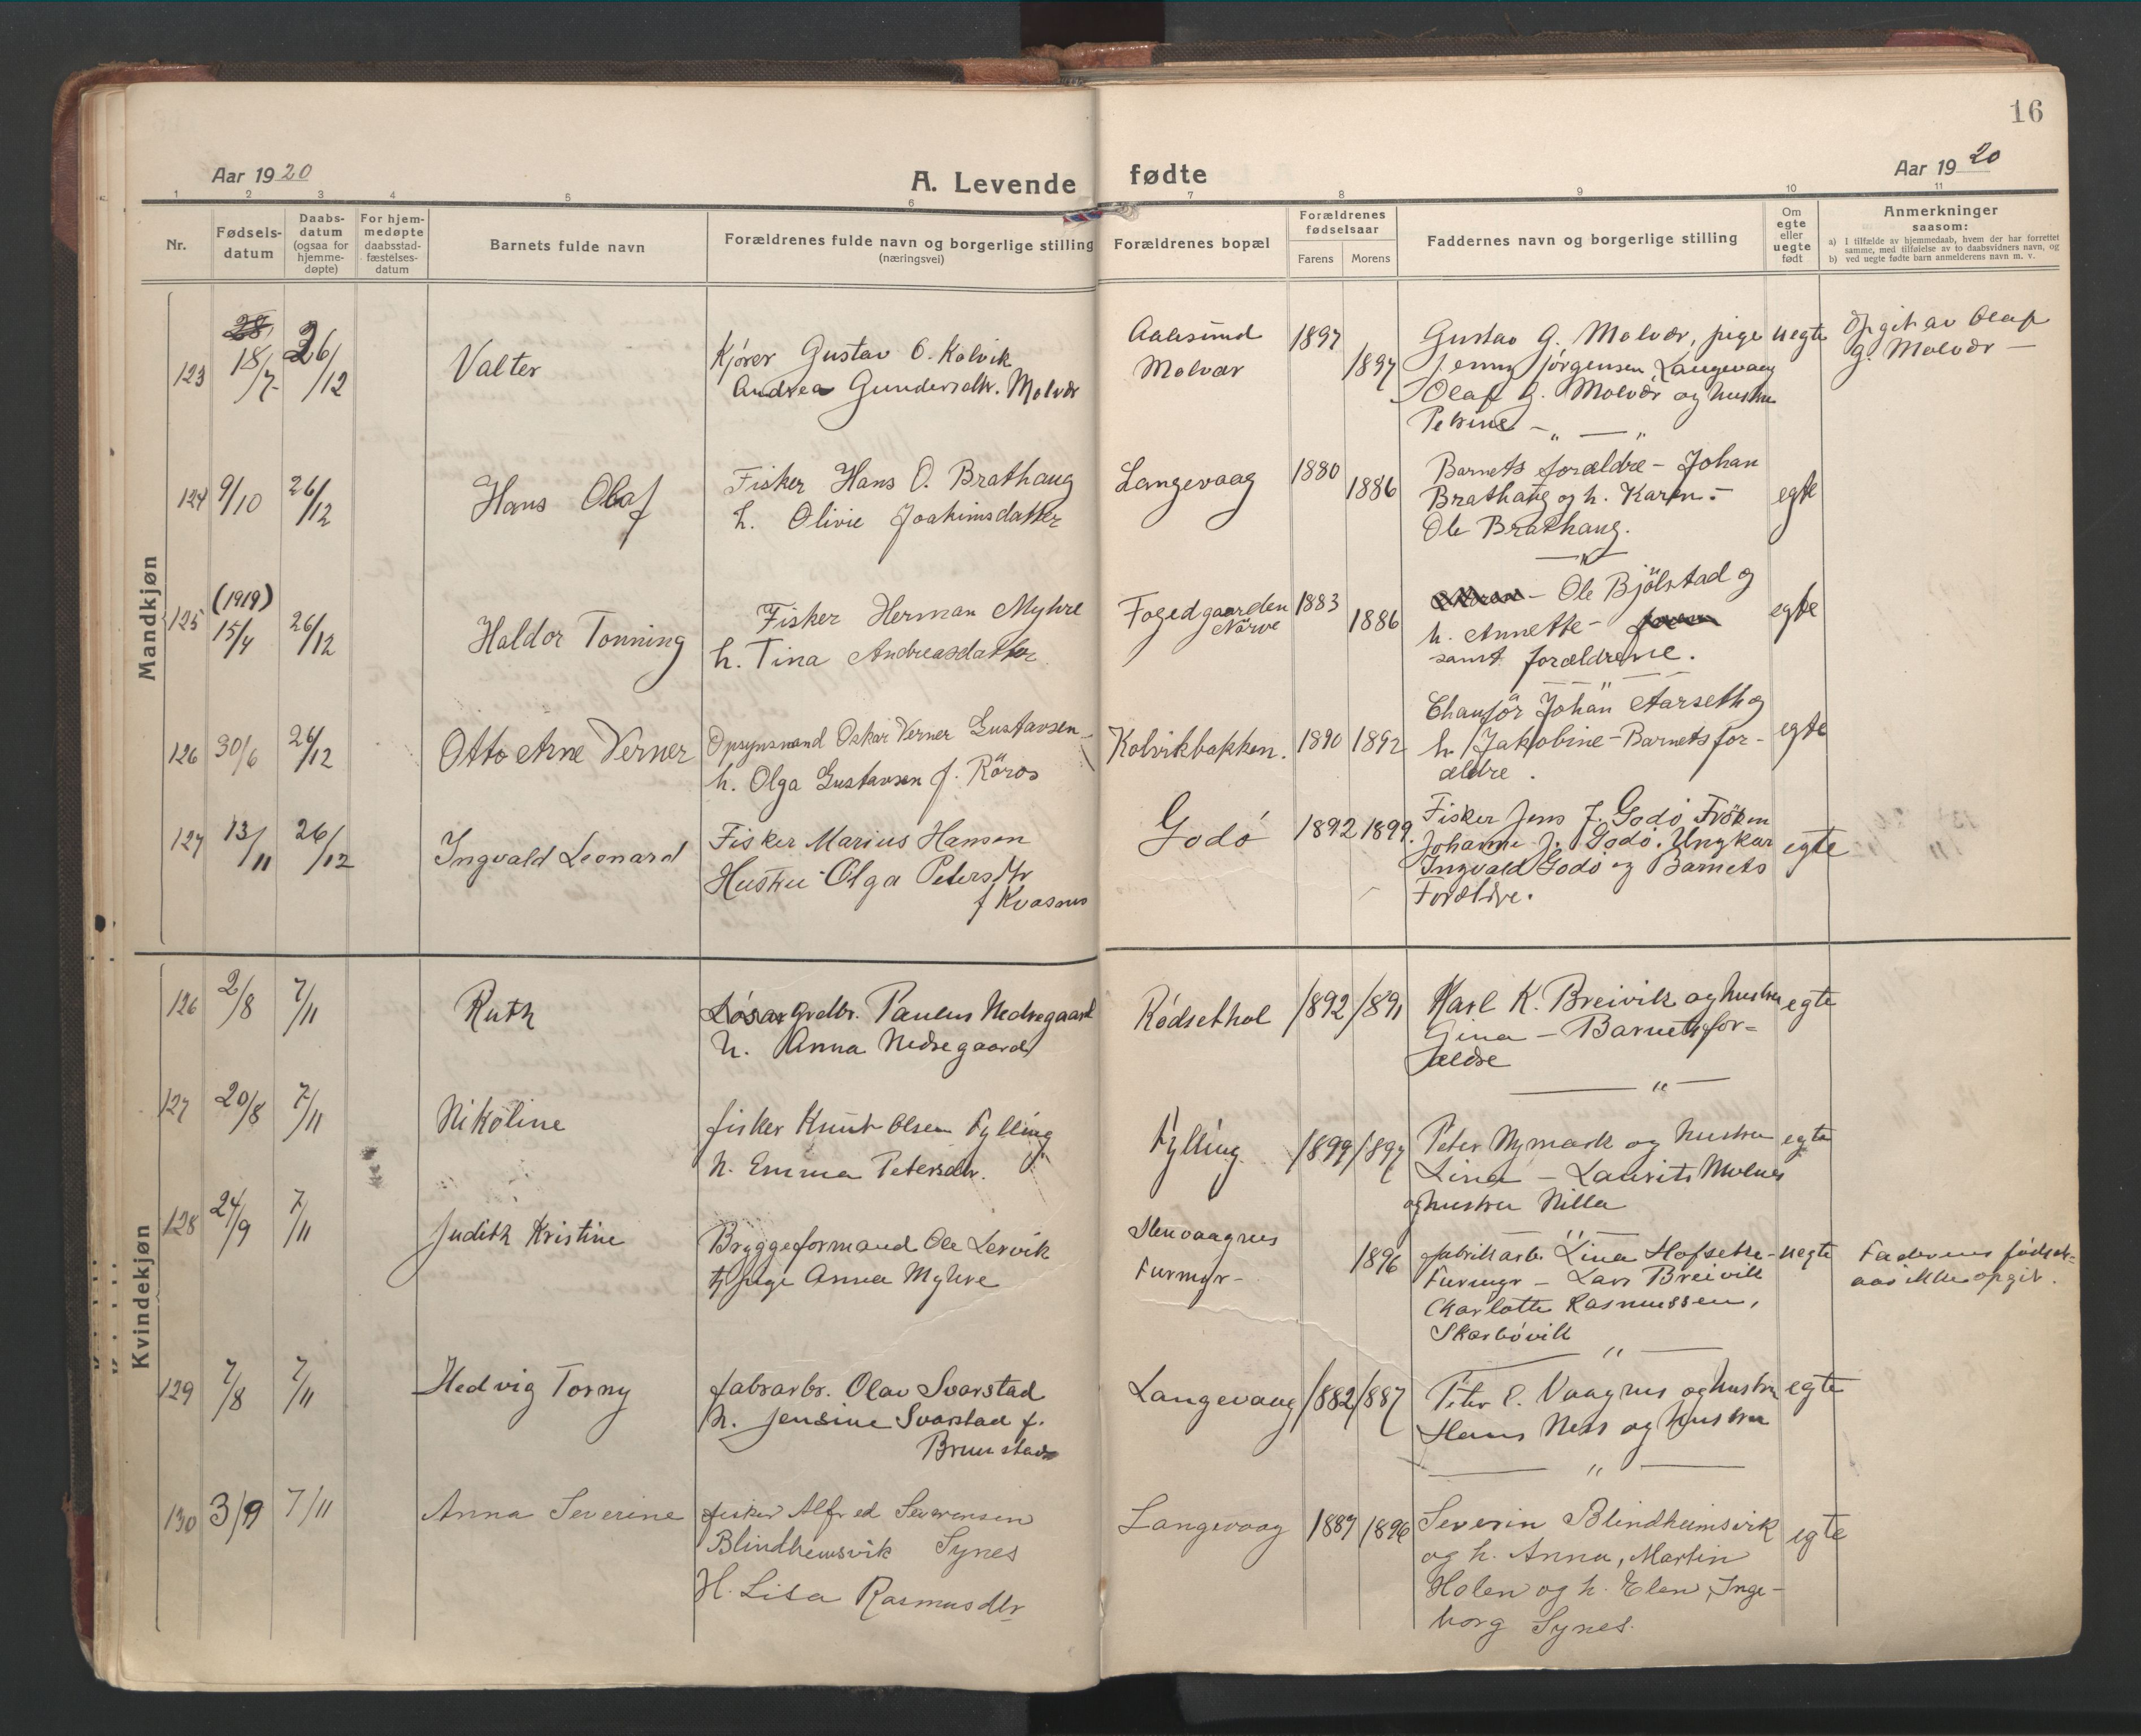 16
Aar 1920
A. Levende fødte
Aar 1920
1 2 3 4 5 6 7 8 9 10 11
Nr.
Fødsels-
datum
Daabs-
datum
(ogsaa for
hjemme-
døpte)
For hjem-
medøpte
daabsstad-
fæstelses-
datum
Barnets fulde navn
Forældrenes fulde navn og borgerlige stilling
(næringsvei)
Forældrenes bopæl
Forældrenes
fødselsaar
Farens Morens
Faddernes navn og borgerlige stilling
Om
egte
eller
uegte
født
Anmerkninger
saasom:
a) I tilfælde av hjemmedaab, hvem der har forrettet
samme, med tilføielse av to daabsvidners navn, og
b) ved uegte fødte barn anmelderens navn m. v.
Mandkjøn
123 18/7 26/12 Valter
Kjører Gustav O. Kolvik
Andrea Gundersdtr. Molvær
Aalesund
Molvær
1897 1897
Gustav G. Molvær, pige
Jenny Jørgensen, Langevaag
Olaf G. Molvær og hustru
Petrine — " —
uegte
Opgit av Olaf
G. Molvær —
124 9/10 26/12 Hans Olaf
Fisker Hans O. Brathaug
h. Olivie Joakimsdatter
Langevaag
1880 1886
Barnets forældre – Johan
Brathaug og h. Karen –
Ole Brathaug.
egte
125 (1919) 15/4 26/12 Haldor Tonning
Fisker Herman Myhre
h. Tina Andreasdatter
Fogedgaarden
Nörve
1883 1886
– Ole Bjölstad og
h. Annette –
samt forældrene.
egte
126 30/6 26/12 Otto Arne Verner
Opsynsmand Oskar Verner Gustavsen
h. Olga Gustavsen f. Röros
Kolvikbakken.
1890 1892
Chauför Johan Aarseth og
h. Jakobine – Barnets for-
ældre.
egte
127 13/11 26/12 Ingvald Leonard
Fisker Marius Hansen
Hustru Olga Petersdtr
f Kvasnes
Godö
1892 1899.
Fisker Jens J. Godö, Fröken
Johanne J. Godö. Ungkar
Ingvald Godö og Barnets
Forældre.
egte
Kvindekjøn
126 2/8 7/11 Ruth
grdbr. Paulus Nedregaard
h. Anna Nedregaard
Rødsethol
1892 1891
Karl K. Breivik og hustru
Gina – Barnets for=
ældre
egte
127 20/8 7/11 Nikoline
fisker Knut Olsen Fylling
h. Emma Petersdtr.
Fylling
1899 1897
Peter Nymark og hustru
Lina – Laurits Molnes
og hustru Nilla
egte
128 24/9 7/11 Judith Kristine
Bryggeformand Ole Lervik
pige Anna Myhre
Stenvaagnes
Furmyr –
1896
fabrikarb. Lina Hofseth –
Furmyr – Lars Breivik
Charlotte Rasmussen,
Skarbøvik
uegte
Faderens fødsels=
aar ikke opgit.
129 7/8 7/11 Hedvig Torny
fabrarbr. Olav Svorstad
h. Jensine Svorstad f.
Brunstad
Langevaag
1882 1887
Peter E. Vaagnes og hustru
Hans Ness og hustru
egte
130 3/9 7/11 Anna Severine
fisker Alfred Severinsen
Blindheimsvik Synes
H. Lisa Rasmusdtr
Langevaag
1887 1896
Severin Blindheimsvik
og h. Anna, Martin
Holen og h. Elen, Inge-
borg Synes.
egte